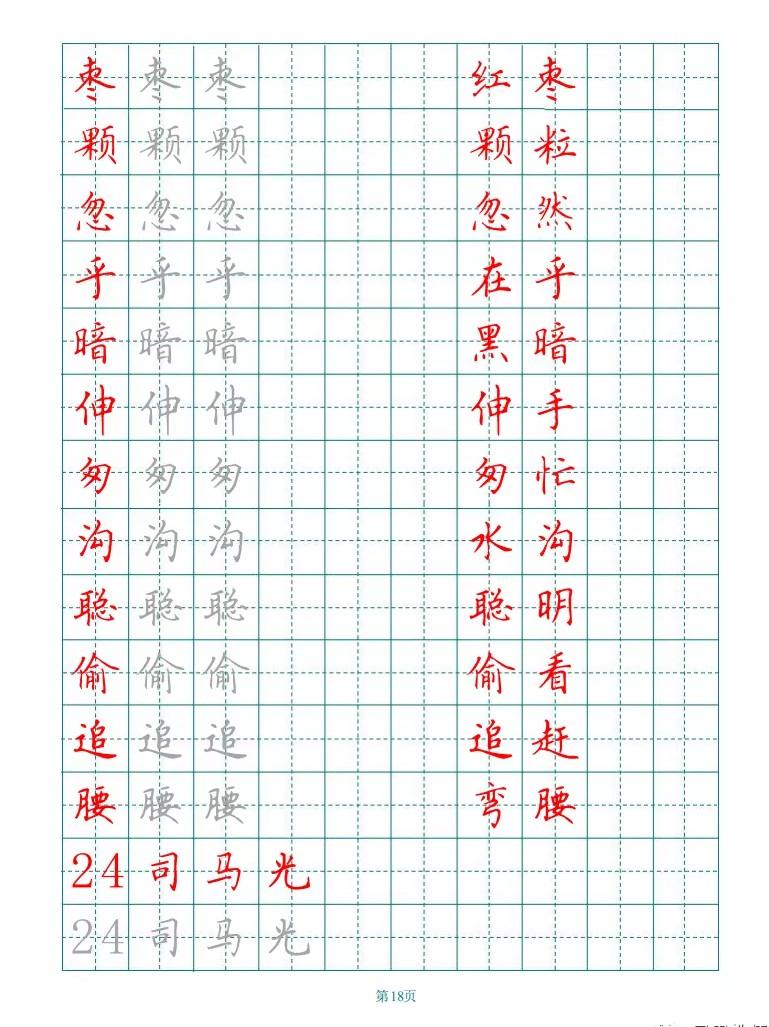 枣 枣 枣 红 枣
颗 颗 颗 颗 粒
忽 忽 忽 忽 然
乎 乎 乎 在 乎
暗 暗 暗 黑 暗
伸 伸 伸 伸 手
匆 匆 匆 匆 忙
沟 沟 沟 水 沟
聪 聪 聪 聪 明
偷 偷 偷 偷 看
追 追 追 追 赶
腰 腰 腰 弯 腰
24 司 马 光
24 司 马 光
第18页